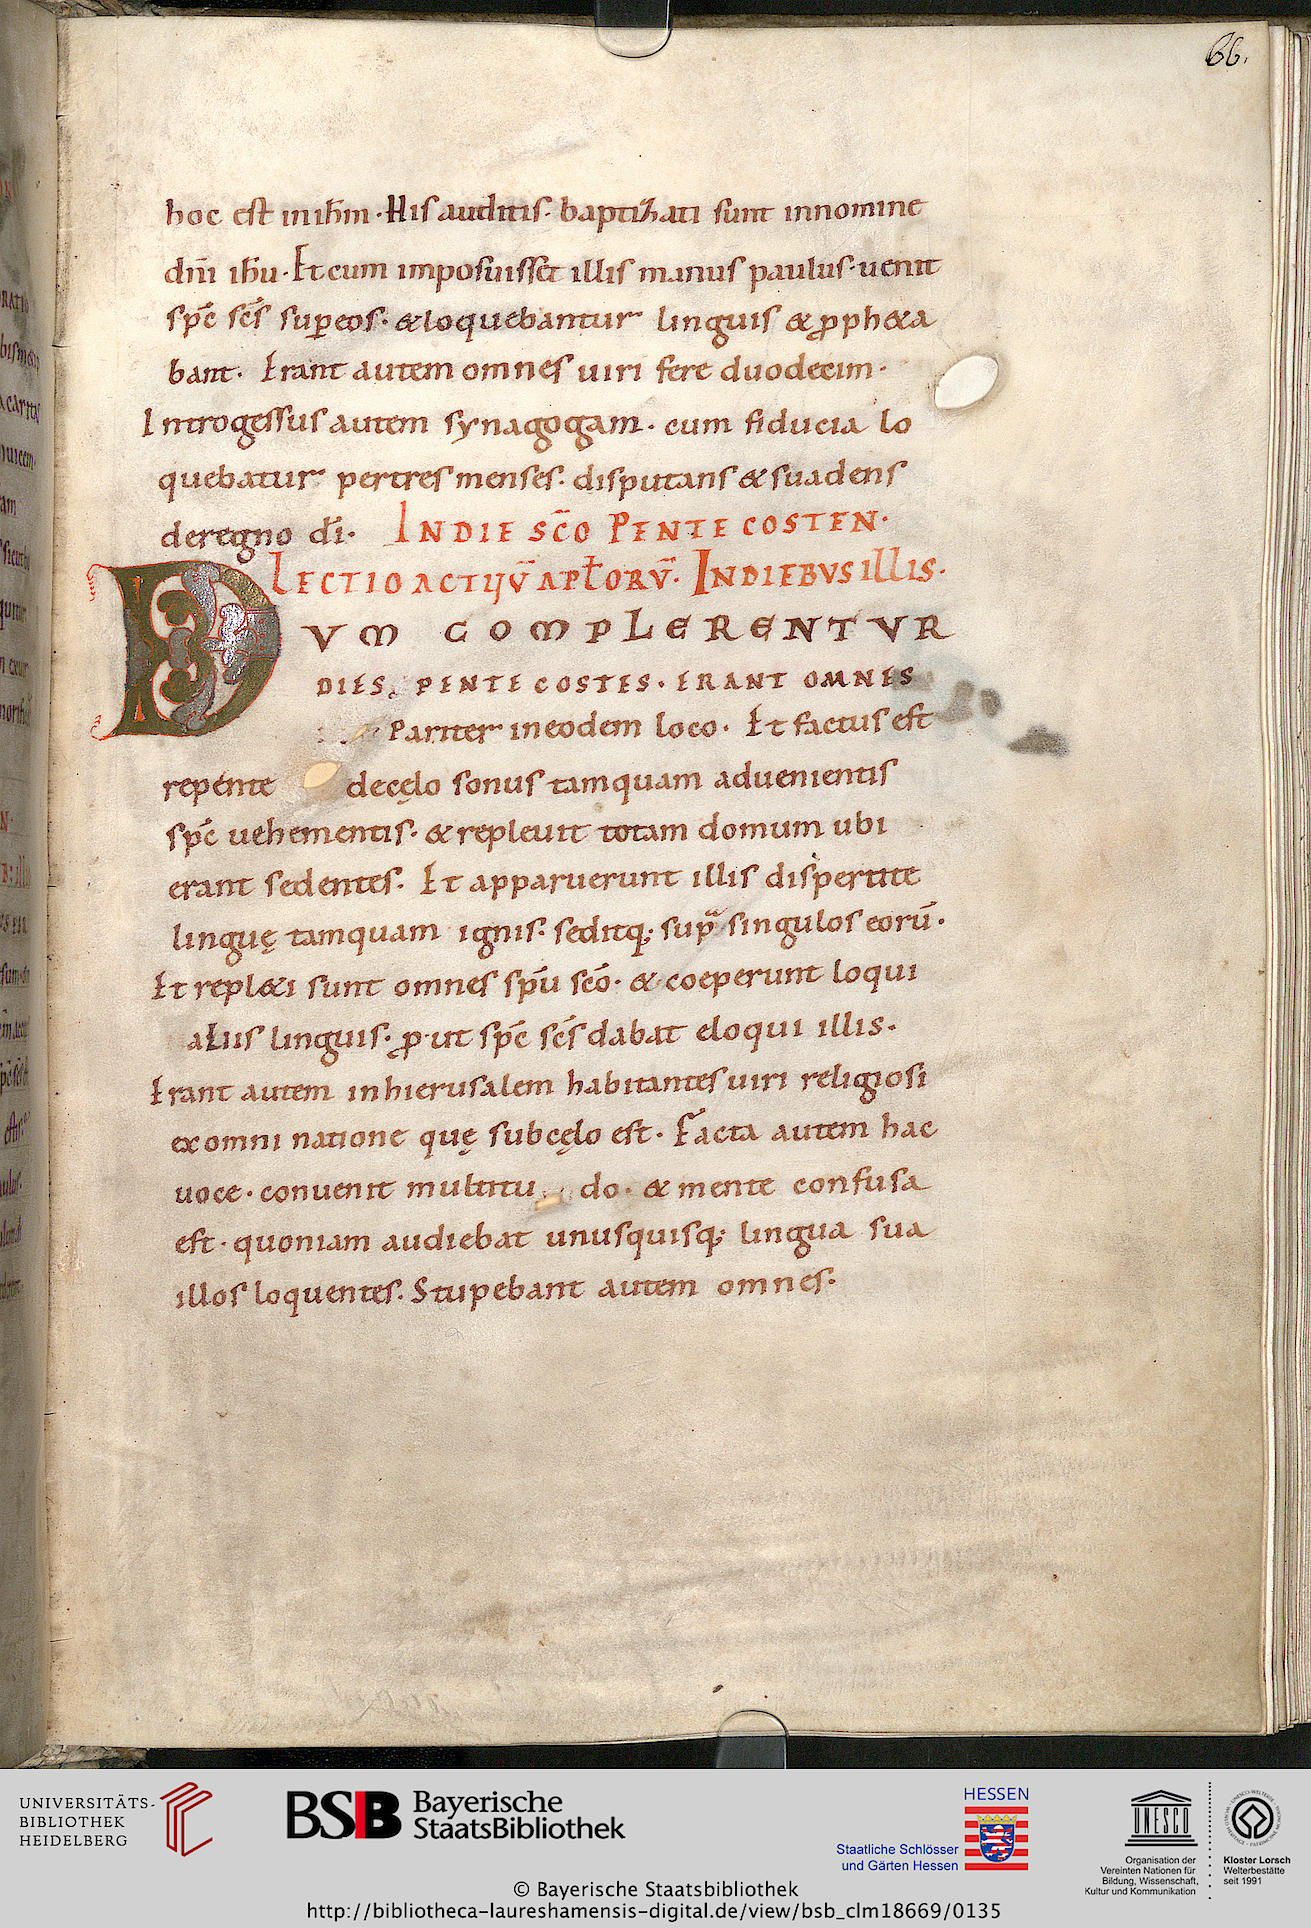 66.
hoc est in ih̄m · His auditis · baptizati sunt innomine
dn̄i ih̄u · Et cum imposuisset illis manus paulus · uenit
sp̄c sc̄s sup̱ eos · & loquebantur linguis & ꝓph&a
bant · Erant autem omnes uiri fere duodecim ·
Introgessus autem synagogam · cum fiducia lo
quebatur pertres menses · disputans & suadens
deregno dī · INDIE SC̄O PENTECOSTEN ·
LECTIO ACTIVV̄ APŁORV̄ · INDIEBVS illis ·
DVM COMPLERENTVR
DIES PENTECOSTES · ERANT OMNES
Pariter ineodem loco · Et factus est
repente decęlo sonus tamquam aduenientis
sp̄c uehementis · & repleuit totam domum ubi
erant sedentes · Et apparuerunt illis dispertite
linguę tamquam ignis · seditq; supra singulos eorū ·
Et repl&i sunt omnes sp̄u sc̄o · & coeperunt loqui
aliis linguis · ꝓut sp̄c sc̄s dabat eloqui illis ·
Erant autem inhierusalem habitantes uiri religiosi
ex omni natione quę subcęlo est · Facta autem hac
uoce · conuenit multitudo · & mente confusa
est · quoniam audiebat unusquisq; lingua sua
illos loquentes · Stupebant autem omnes ·
UNIVERSITÄTS-
BIBLIOTHEK
HEIDELBERG
BSB Bayerische
StaatsBibliothek
HESSEN
Staatliche Schlösser
und Gärten Hessen
UNESCO
Organisation der
Vereinten Nationen für
Bildung, Wissenschaft,
Kultur und Kommunikation
Kloster Lorsch
Welterbestätte
seit 1991
© Bayerische Staatsbibliothek
http://bibliotheca-laureshamensis-digital.de/view/bsb_clm18669/0135